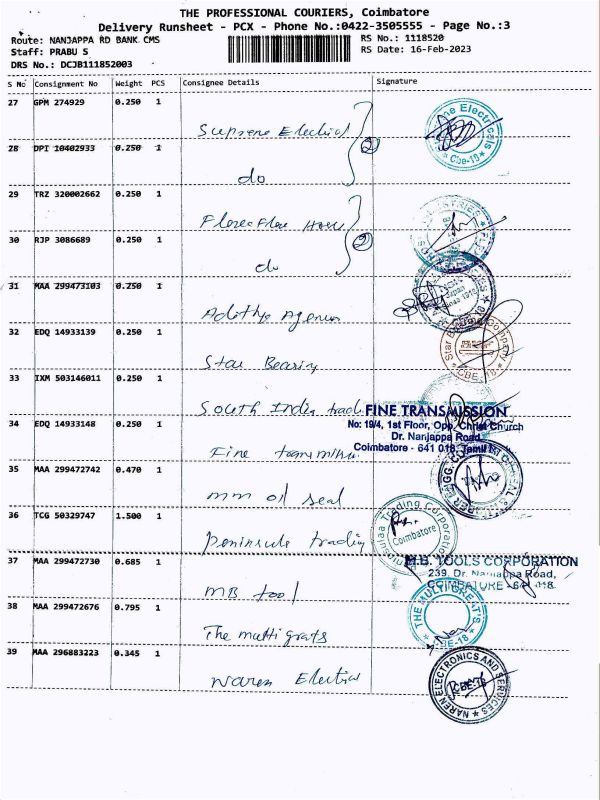 THE PROFESSIONAL COURIERS, Coimbatore
Delivery Runsheet - PCX - Phone No.:0422-3505555 - Page No.:3
Route: NANJAPPA RD BANK CMS
RS No.: 1118520
Staff: PRABU S
RS Date: 16-Feb-2023
DRS No.: DCJB111852003
S No Consignment No Weight PCS Consignee Details Signature
27 GPM 274929 0.250 1
Supreme Electrical
28 DPI 10402933 0.250 1
do
2
29 TRZ 320002662 0.250 1
30 RJP 3086689 0.250 1
do
2
31 MAA 299473103 0.250 1
Adithya Agencies
32 EDQ 14933139 0.250 1
Star Bearing
33 IXM 503146011 0.250 1
South India trad
FINE TRANSMISSION
No: 19/4, 1st Floor, Opp. Christ Church
Dr. Nanjappa Road,
Coimbatore - 641 018, Tamil
34 EDQ 14933148 0.250 1
Fine
35 MAA 299472742 0.470 1
mm oil seal
36 TCG 50329747 1.500 1
Peninsula trading
Peninsulaa Trading Corporation
Coimbatore
37 MAA 299472730 0.685 1
MB tool
M.B. TOOLS CORPORATION
239, Dr. Nanjappa Road,
COIMBATURE - 641 018
38 MAA 299472676 0.795 1
The multi grats
THE MULTI GREAT'S
CBE-18
39 MAA 296883223 0.345 1
Naren Electrical
NAREN ELECTRONICS AND SERVICES
CBE-18